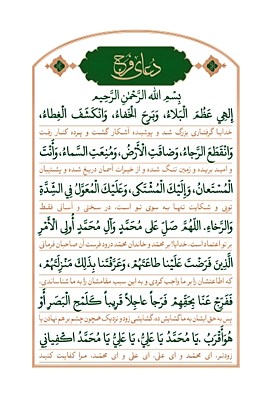 دعای فرج
بِسْمِ اللهِ الرَّحْمٰنِ الرَّحِیمِ
إِلٰهِي عَظُمَ الْبَلَاءُ، وَبَرِحَ الْخَفَاءُ، وَانْكَشَفَ الْغِطَاءُ،
خدایا گرفتاری بزرگ شد و پوشیده آشکار گشت و پرده کنار رفت
وَانْقَطَعَ الرَّجَاءُ، وَضَاقَتِ الْأَرْضُ، وَمُنِعَتِ السَّمَاءُ، وَأَنْتَ
و امید بریده و زمین تنگ شده و از خیرات آسمان دریغ شده و پشتیبان
الْمُسْتَعَانُ، وَإِلَيْكَ الْمُشْتَكَى، وَعَلَيْكَ الْمُعَوَّلُ فِي الشِّدَّةِ
تویی و شکایت تنها به سوی تو است، در سختی و آسانی فقط
وَالرَّخَاءِ. اللَّهُمَّ صَلِّ عَلَى مُحَمَّدٍ وَآلِ مُحَمَّدٍ أُولِي الْأَمْرِ
بر تو اعتماد است. خدایا! بر محمد و خاندان محمد درود فرست آن صاحبان فرمانی
الَّذِينَ فَرَضْتَ عَلَيْنَا طَاعَتَهُمْ، وَعَرَّفْتَنَا بِذٰلِكَ مَنْزِلَتَهُمْ،
که اطاعتشان را بر ما واجب کردی و به این سبب مقامشان را به ما شناساندی،
فَفَرِّجْ عَنَّا بِحَقِّهِمْ فَرَجاً عَاجِلاً قَرِيباً كَلَمْحِ الْبَصَرِ أَوْ
پس به حق ایشان به ما گشایش ده، گشایشی زود و نزدیک همچون چشم بر هم نهادن یا
هُوَ أَقْرَبُ. يَا مُحَمَّدُ يَا عَلِيُّ، يَا عَلِيُّ يَا مُحَمَّدُ اكْفِيَانِي
زودتر، ای محمد و ای علی، ای علی و ای محمد، مرا کفایت کنید